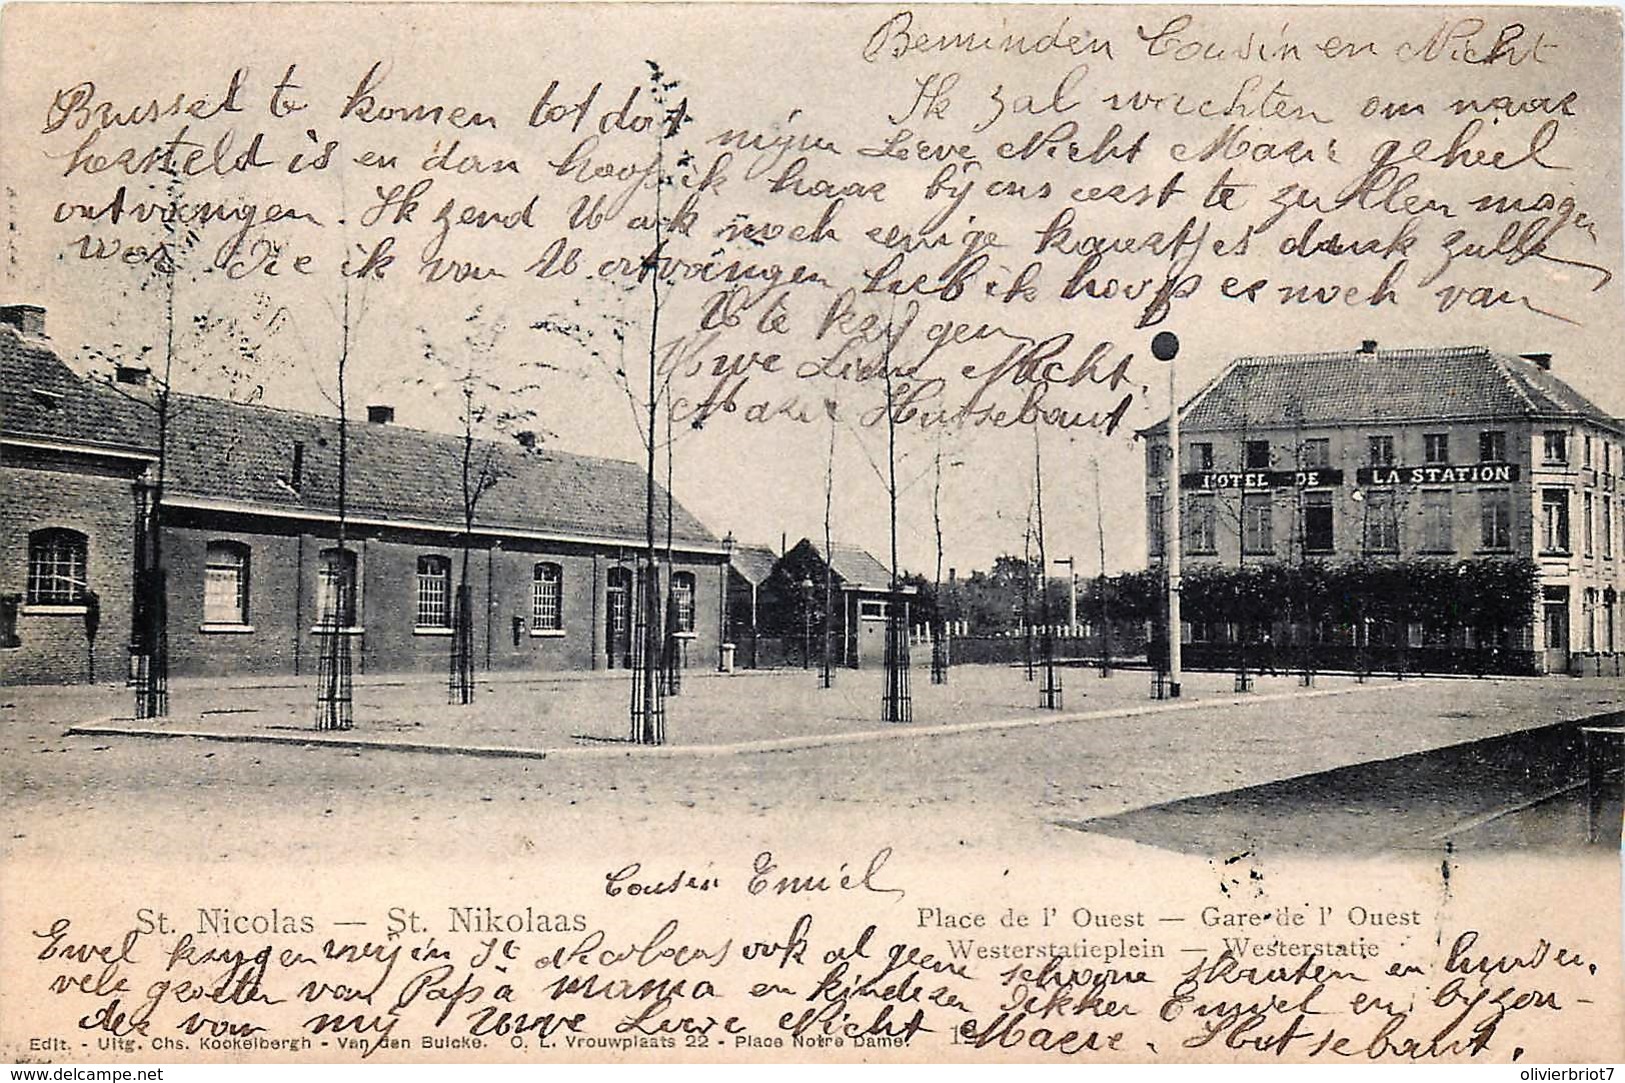 Beminden Cousin en Nicht
Ik zal wachten om naar
Brussel te komen tot dat mijn Lieve Nicht Marie geheel
hersteld is en dan hoop ik haar bij ons eerst te zullen mogen
ontvangen. Ik zend U ook noch eenige kaartjes dank zulle
voor die ik van U ontvangen heb ik hoop er noch van
U te krijgen
Uwe Lieve Nicht.
Marie Hutsebaut
HOTEL DE LA STATION
Cousin Emiel
St. Nicolas — St. Nikolaas
Place de l' Ouest — Gare de l' Ouest
Westerstatieplein — Westerstatie
Ewel krygen wij in St Nikolaas ook al geene schoone skaaten en
vele groeten van Papa mama en kinderen Emiel en byzon-
der van mij Uwe Lieve Nicht Marie. Hutsebaut.
Edit. - Uitg. Chs. Kockelbergh - Van den Bulcke. O. L. Vrouwplaats 22 - Place Notre Dame.
delcampe.net
olivierbriot7